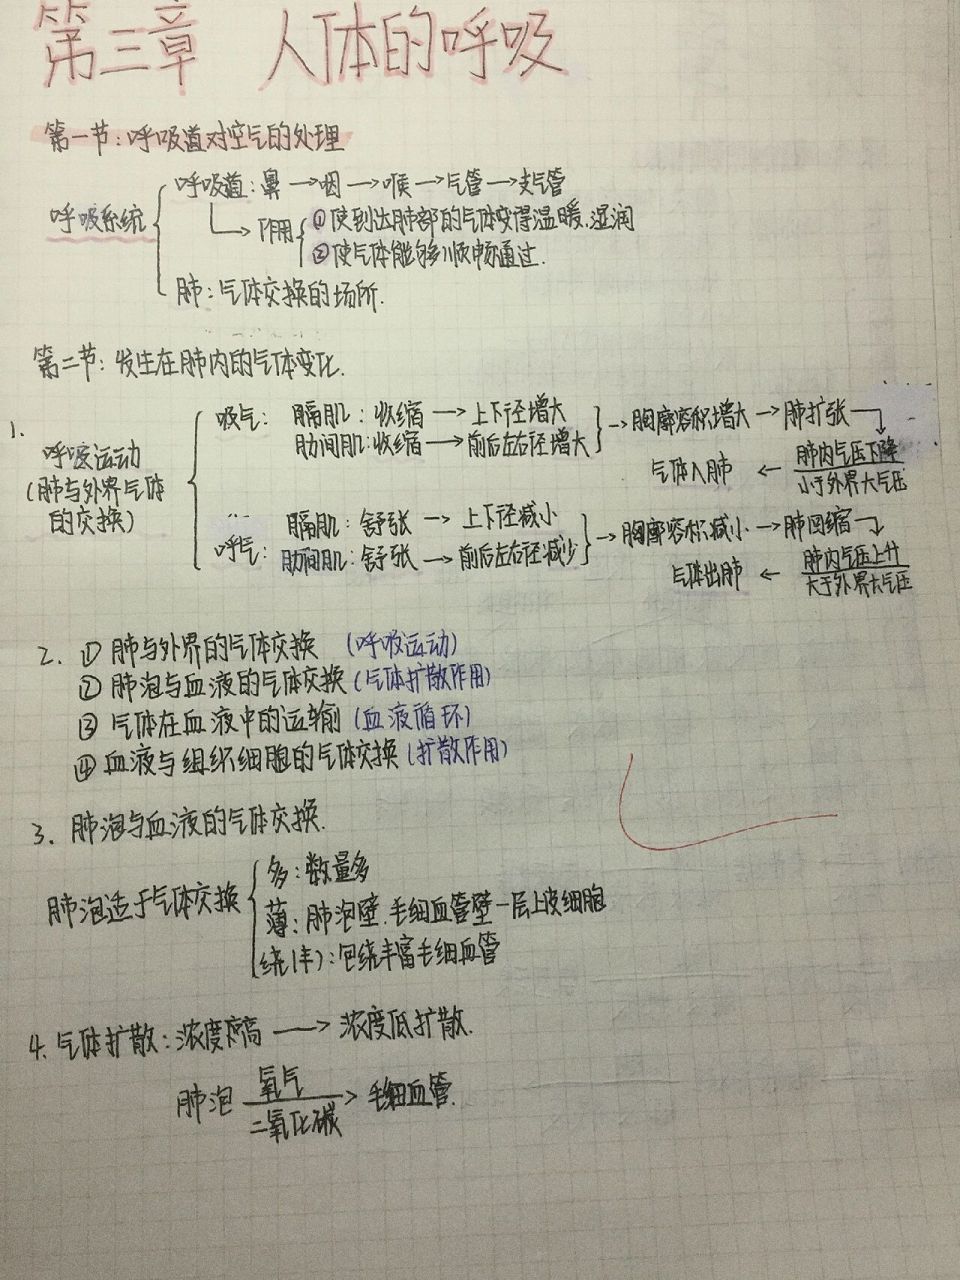 第三章 人体的呼吸
第一节：呼吸道对空气的处理
呼吸系统
呼吸道：鼻→咽→喉→气管→支气管
作用
①使到达肺部的气体变得温暖.湿润
②使气体能够顺畅通过.
肺：气体交换的场所.
第二节：发生在肺内的气体变化.
1.
呼吸运动
(肺与外界气体
的交换)
吸气：膈肌：收缩→上下径增大
肋间肌：收缩→前后左右径增大
→胸廓容积增大→肺扩张
肺内气压下降
小于外界大气压
气体入肺←
呼气：膈肌：舒张→上下径减小
肋间肌：舒张→前后左右径减少
→胸廓容积减小→肺回缩
肺内气压上升
大于外界大气压
气体出肺←
2. ①肺与外界的气体交换 (呼吸运动)
②肺泡与血液的气体交换(气体扩散作用)
③气体在血液中的运输(血液循环)
④血液与组织细胞的气体交换(扩散作用)
3. 肺泡与血液的气体交换.
肺泡适于气体交换
多：数量多
薄：肺泡壁.毛细血管壁一层上皮细胞
绕(丰)：包绕丰富毛细血管
4. 气体扩散：浓度高→浓度低扩散.
肺泡 氧气 → 毛细血管.
二氧化碳